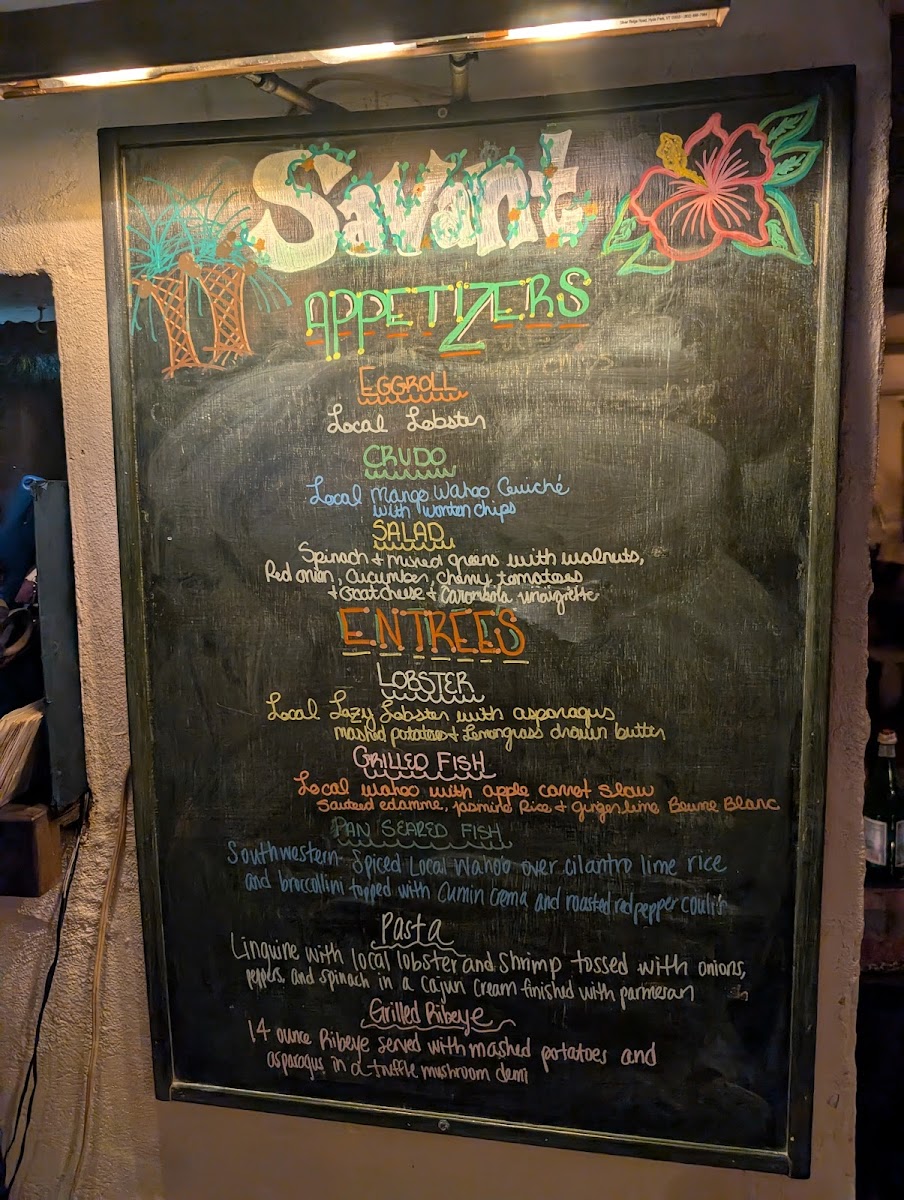 Savant
APPETIZERS
CHIPS
EGGROLL
Local Lobster
CRUDO
Local Mango Wahoo Ceviché
with wonton chips
SALAD
Spinach + mixed greens with walnuts,
Red onion, Cucumber, cherry tomatoes
+ Goat cheese + Carambola vinaigrette
ENTREES
LOBSTER
Local Lazy Lobster with asparagus
mashed potatoes + Lemongrass drawn butter
GRILLED FISH
Local wahoo with apple carrot slaw
Sauteed edamme, Jasmine Rice + ginger lime Beurre Blanc
PAN SEARED FISH
Southwestern Spiced Local Wahoo over cilantro lime rice
and broccollini topped with Cumin Crema and roasted red pepper coulis
Pasta
Linguine with local lobster and shrimp tossed with onions,
peppers, and spinach in a Cajun Cream finished with parmesan
Grilled Ribeye
14 ounce Ribeye served with mashed potatoes and
asparagus in a truffle mushroom demi